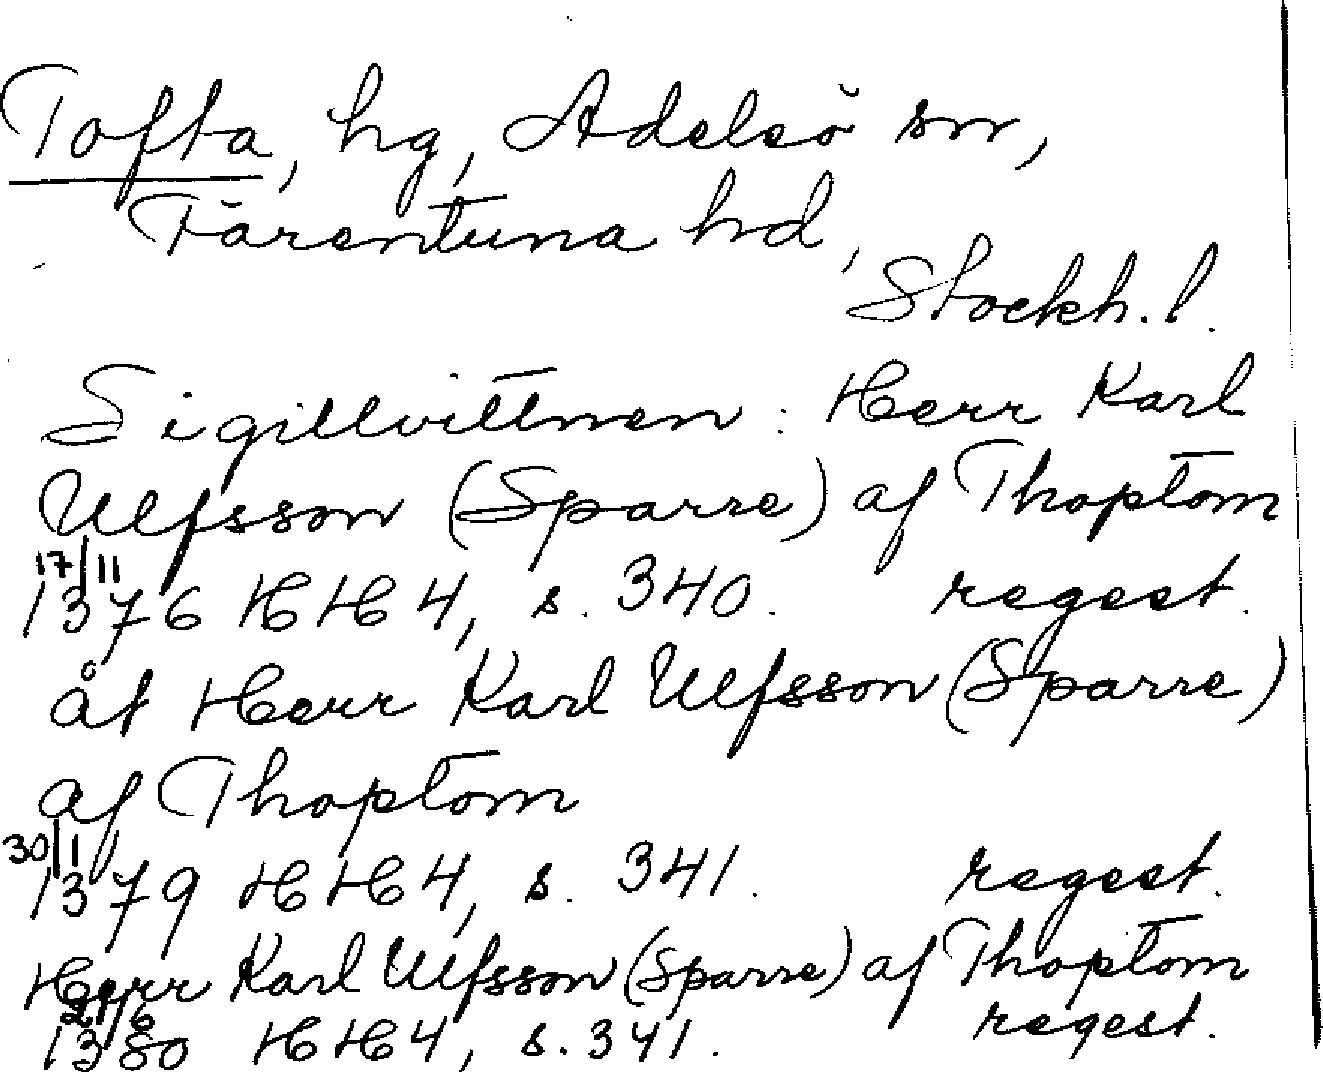 Tofta, hg, Adelsö sn,
Färentuna hd,
Stockh. l.
Sigillvittnen: Herr Karl
Ulfsson (Sparre) af Thoptom
17/11
1376 HH 4, s. 340. regest.
åt Herr Karl Ulfsson (Sparre)
af Thoptom
30/1
1379 HH 4, s. 341. regest.
Herr Karl Ulfsson (Sparre) af Thoptom
21/6
1380 HH 4, s. 341. regest.